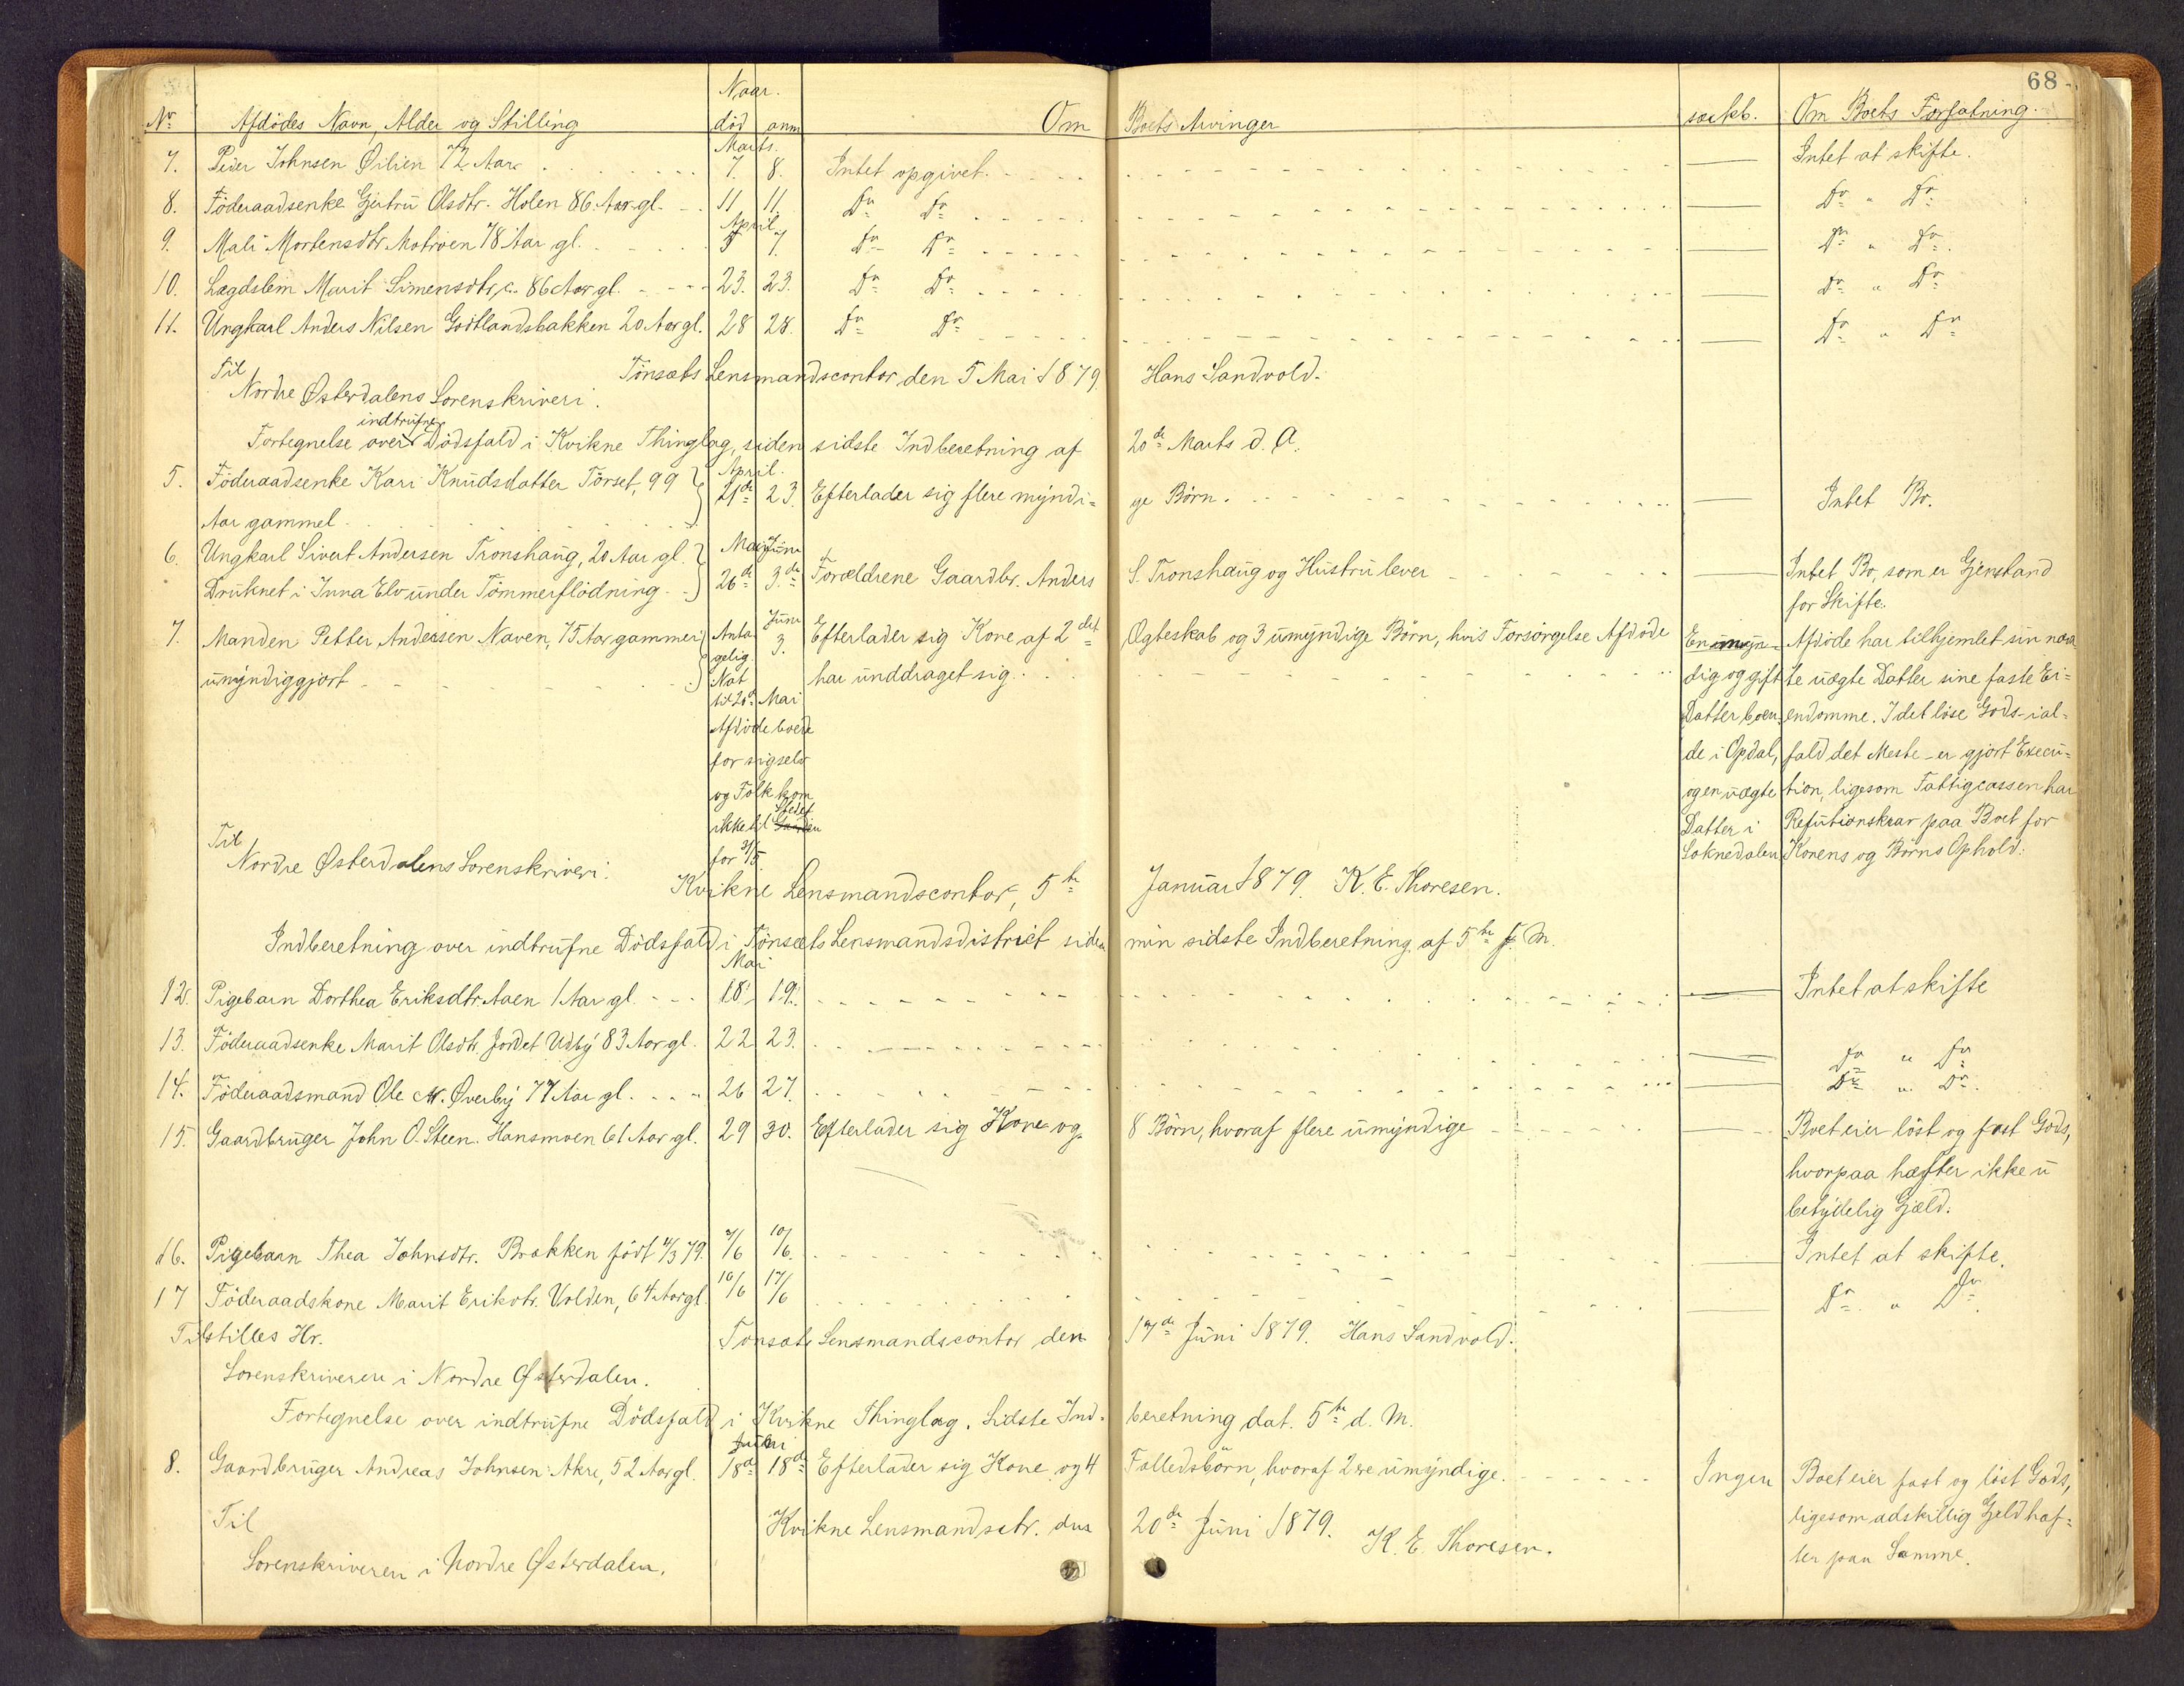 68
Naar.
Nr Afdödes Navn, Alder og Stilling död anm Om Boets Arvinger særkb. Om Boets Forfatning.
Marts.
7. Peder Johnsen Øilien 72 Aar 7. 8. Intet opgivet. Intet at skifte.
8. Föderaadsenke Gjertru Olsdtr. Holen 86 Aar gl. 11 11. Do Do Do " Do
April
9. Mali Mortensdtr Motroen 78 Aar gl. 5 7. Do Do Do " Do.
10. Lægdslem Marit Simensdtr, c. 86 Aar gl. 23. 23. Do Do Do " Do
11. Ungkarl Anders Nilsen Godtlandsbakken 20 Aar gl. 28 28. Do Do Do " Do
Til Tönsæts Lensmandscontor den 5 Mai 1879 Hans Sandvold.
Nordre Østerdalens Sorenskriveri.
indtrufne
Fortegnelse over Dödsfald i Kvikne Thinglag, siden sidste Indberetning af 20de Marts d. A.
April.
5. Föderaadsenke Kari Knudsdatter Törset, 99 21de 23. Efterlader sig flere myndi= ge Börn. Intet Bo.
Aar gammel.
Mai Juni
6. Ungkarl Sivert Andersen Tronshaug, 20 Aar gl.
Druknet i Inna Elv under Tömmerflödning 26de 3.de Forældrene Gaardbr. Anders S. Tronshaug og Hustru lever Intet Bo, som er Gjenstand
for Skifte.
Juni
7. Manden Petter Andersen Naven, 75 Aar gammel Anta 3. Efterlader sig Kone af 2det Ægteskab og 3 umyndige Börn, hvis Forsörgelse Afdöde En umyn= Afdöde har tilhjemlet sin
umyndiggjort gelig
Nat har unddraget sig. dig og gift te uægte Datter sine faste Ei=
til 20de Mai Datter boen= endomme. I det löse Gods - ial=
Afdöde boede
for sigselv de i Opdal, fald det Meste - er gjort Execu=
og Folk kom og en uægte tion, ligesom Fattigcassen har
ikke til Stedet Gaarden Datter i Refutionskrav paa Boet for
for 31/5 Soknedalen Konens og Börns Ophold.
Til
Nordre Østerdalens Sorenskriveri.
Kvikne Lensmandscontor, 5te Januar 1879. K. E. Thoresen.
Indberetning over indtrufne Dödsfald i Tönsæts Lensmandsdistrict siden min sidste Indberetning af 5te f. M.
Mai
12. Pigebarn Dorthea Eriksdtr. Aaen 1 Aar gl. 18. 19. Intet at skifte
13. Föderaadsenke Marit Olsdtr. Jordet Udby 83 Aar gl. 22 23. Do " Do
14. Föderaadsmand Ole M. Øverby 77 Aar gl. 26 27. Do " Do.
15. Gaardbruger John O. Steen. Hansmoen 61 Aar gl. 29 30. Efterlader sig Kone og 8 Börn, hvoraf flere umyndige Boet eier löst og fast Gods,
hvorpaa hæfter ikke u
betydelig Gjæld.
16. Pigebarn Thea Johnsdtr. Brækken födt 4/3 79. 7/6 10/6. Intet at skifte.
17 Föderaadskone Marit Eriksdtr. Volden, 64 Aar gl. 10/6 17/6 Do " Do.
Tilstilles Hr. Tönsæts Lensmandscontor den 17de Juni 1879. Hans Sandvold.
Sorenskriveren i Nordre Østerdalen.
Fortegnelse over indtrufne Dödsfald i Kvikne Thinglag. Sidste Ind= beretning dat. 5te d. M.
Juni
8. Gaardbruger Andreas Johnsen Akre, 52 Aar gl. 18de 18de Efterlader sig Kone og 4 Fælledsbörn, hvoraf 2 ere umyndige. Ingen Boet eier fast og löst Gods,
ligesom adskillig Gjeld hæf=
ter paa Samme.
Til Kvikne Lensmandsctr. den 20de Juni 1879. K. E. Thoresen.
Sorenskriveren i Nordre Østerdalen.